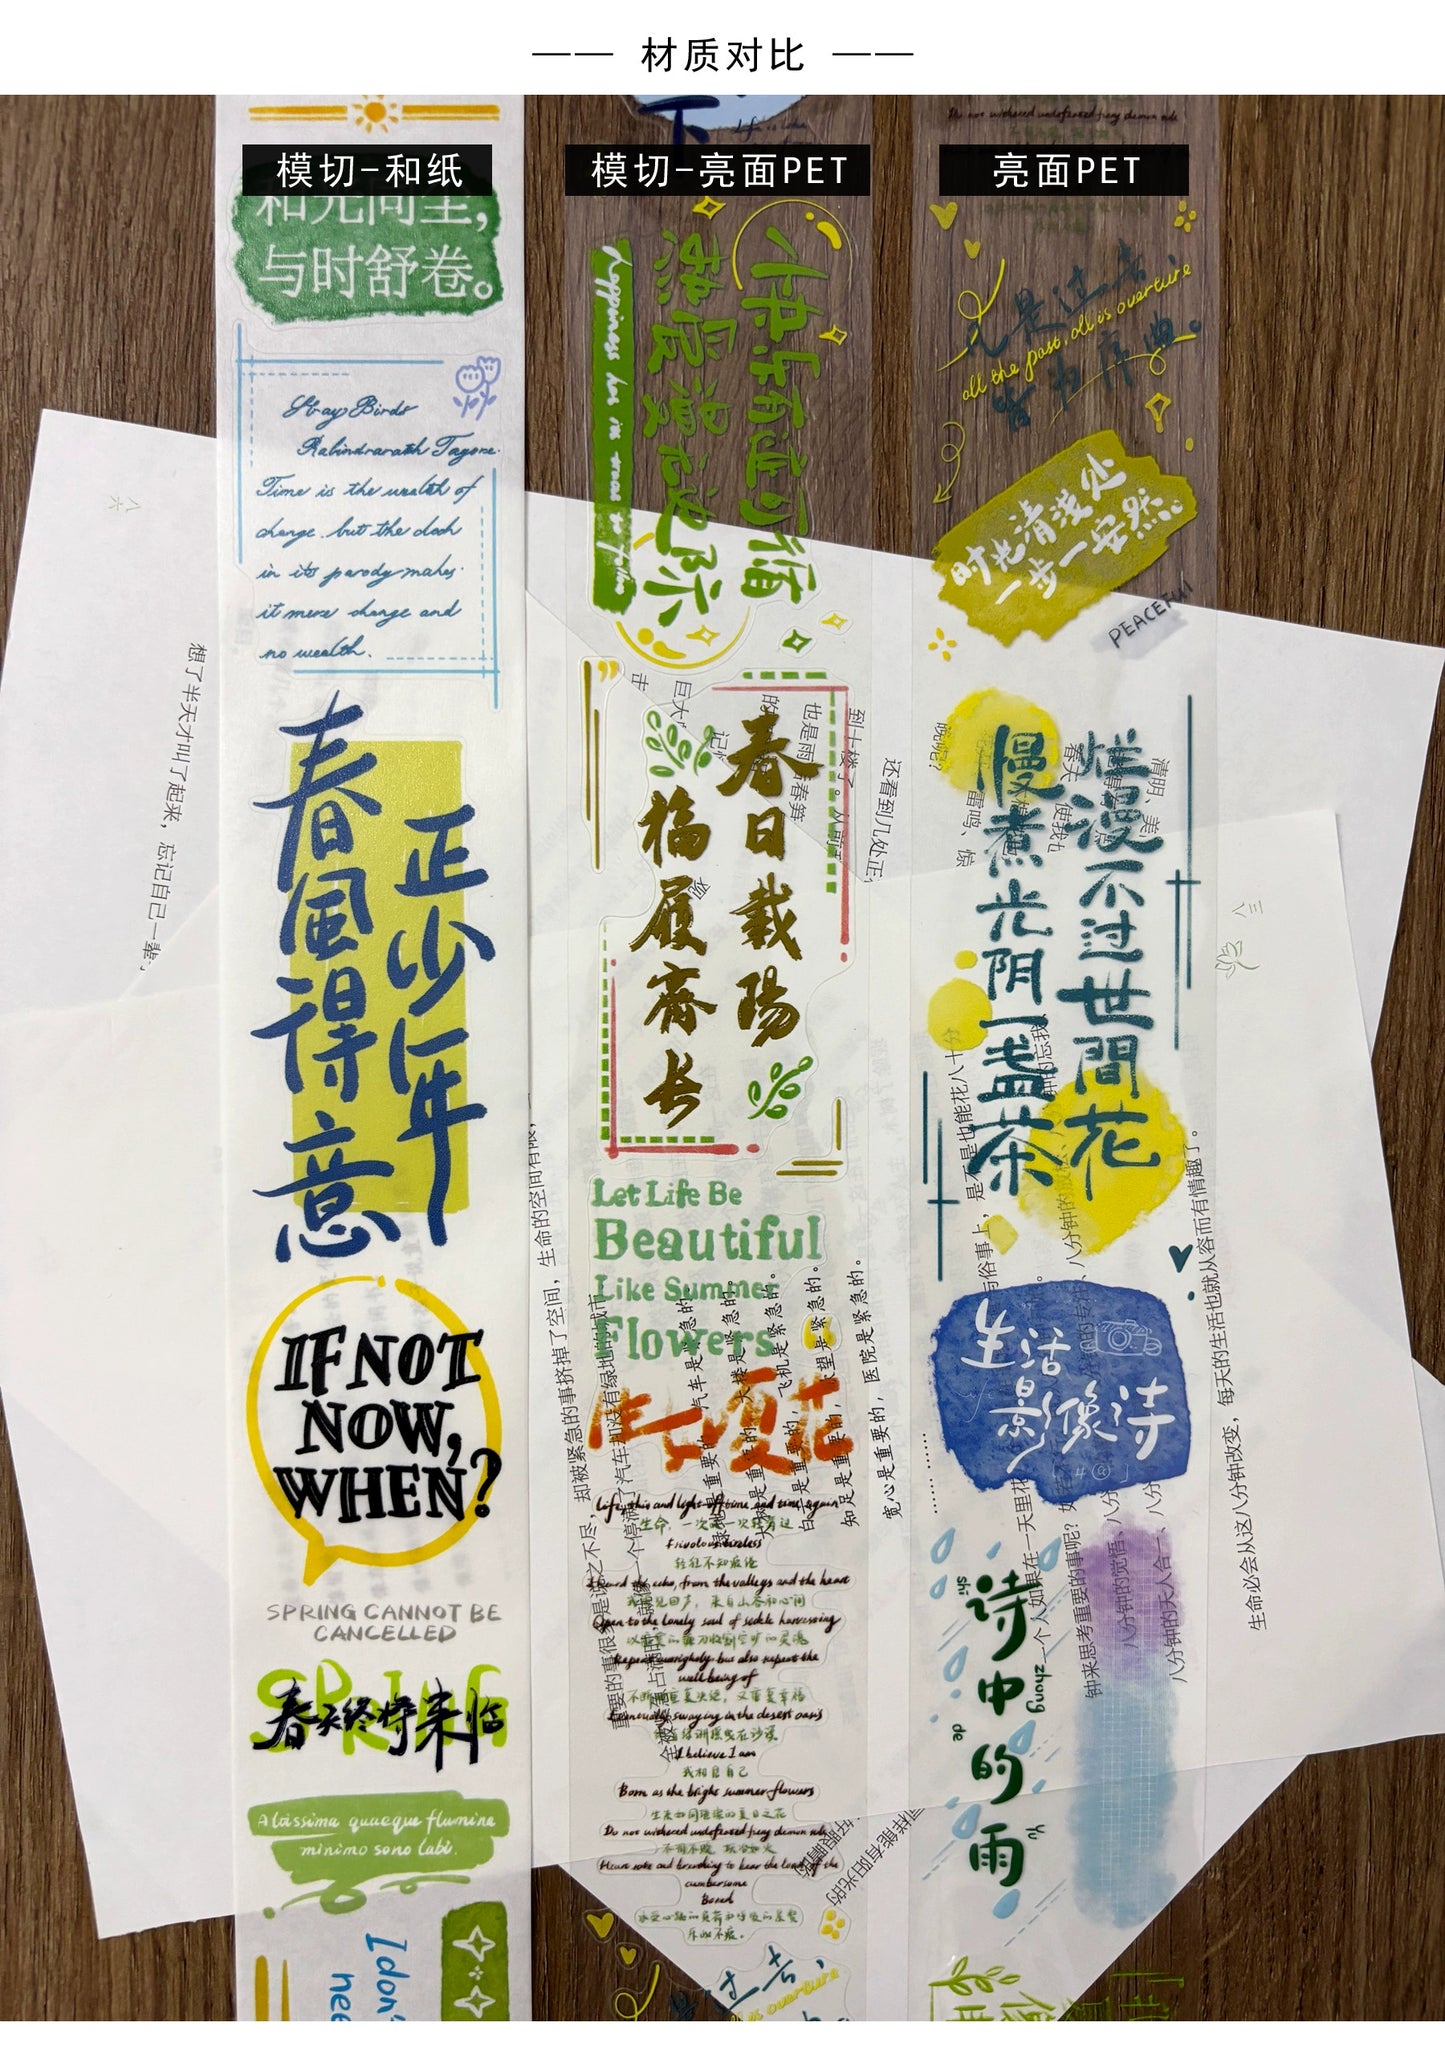 材质对比
模切-和纸
和光同尘，
与时舒卷。
Stray Birds
Rabindranath Tagore.
Time is the wealth of
change. but the clock
in its parody makes
it mere change and
no wealth.
春風得意
正少年
IF NOT
NOW,
WHEN?
SPRING CANNOT BE
CANCELLED
SPRING
春天终将来临
Altissima quaeque flumina
minimo sono labi.
Idon'
nee
模切-亮面PET
下
快乐有迹可循
热爱漫无边际
happiness has in
春日载陽
福履齊长
Let Life Be
Beautiful
Like Summer
Flowers
生如夏花
Life, thin and light-off time and time again
生命，一次又一次轻薄过
Frivolous tireless
轻狂不知疲倦
I heard the echo, from the valleys and the heart
我听见回声，来自山谷和心间
Open to the lonely soul of sickle harvesting
以寂寞的镰刀收割空旷的灵魂
Repeat outrightly but also repeat the
well-being of
不断重复决绝，又重复幸福
Eventually swaying in the desert oasis
终有绿洲摇曳在沙漠
I believe I am
我相信自己
Born as the bright summer flowers
生来如同璀璨的夏日之花
Do not withered undefeated fiery demon rule
不凋不败，妖冶如火
Heart rate and breathing to bear the load of the
cumbersome
Bored
承受心跳的负荷和呼吸的累赘
乐此不疲。
亮面PET
Do not withered undefeated fiery demon rule
凡是过去，
all the past, all is overture
皆为序曲。
时光清浅处
一步一安然。
PEACEFUL
爛漫不过世間花
慢煮光阴一盏茶
生活
影像诗
诗中的雨
shi
zhong
de
yu
想了半天才叫了起来，忘记自己一辈
还看到几处正
生命的空间有限，
却被紧急的事挤掉了空间，
汽车是紧急的。
大楼是紧急的。
飞机是紧急的。
医院是紧急的。
知足是重要的，
宽心是重要的，
每天的生活也就从容而有情趣了。
生命必会从这八分钟改变，
八分钟的觉悟、
八分钟的天人合一、
钟来思考重要的事呢？
一个人如果在一天里花
八六
八三